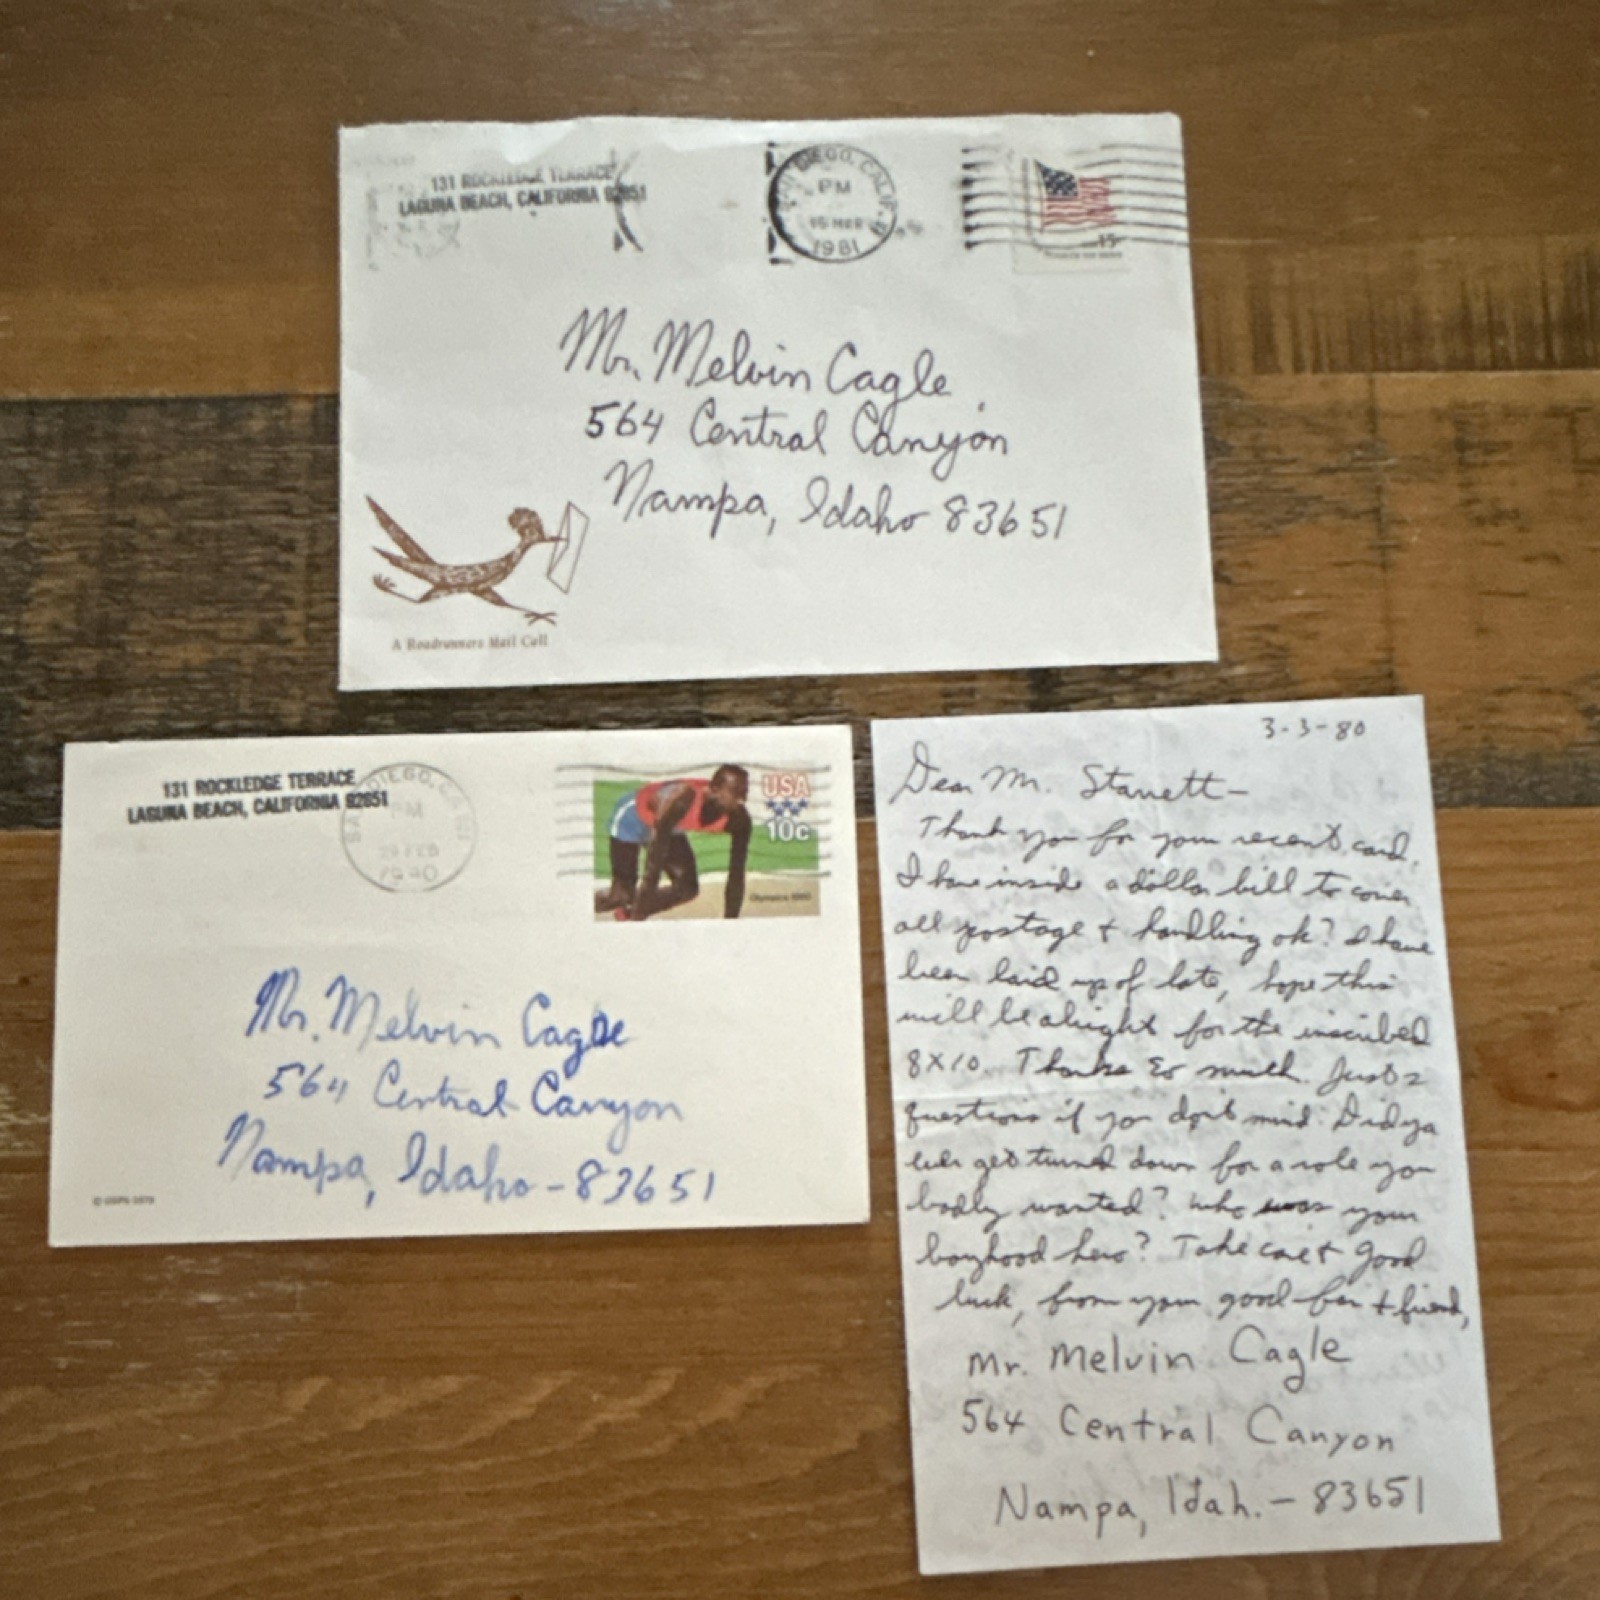 131 ROCKLEDGE TERRACE
LAGUNA BEACH, CALIFORNIA 92651
DIEGO, CALIF.
PM
1981
15c
Mr. Melvin Cagle
564 Central Canyon
Nampa, Idaho 83651
A Roadrunners Mail Call
131 ROCKLEDGE TERRACE
LAGUNA BEACH, CALIFORNIA 92651
DIEGO, CA
PM
29 FEB
1980
USA
10c
Olympics 1980
Mr. Melvin Cagle
564 Central Canyon
Nampa, Idaho - 83651
© USPS 1979
3-3-80
Dear Mr. Starrett -
Thank you for your recent card.
I have inside a dollar bill to cover
all postage & handling ok? I have
been laid up of late, hope this
will be alright for the inscribed
8X10. Thanks so much. Just 2
questions if you don't mind. Did ya
ever get turned down for a role you
badly wanted? Who was your
boyhood hero? Take care & good
luck, from your good fan & friend,
Mr. Melvin Cagle
564 Central Canyon
Nampa, Idah. - 83651